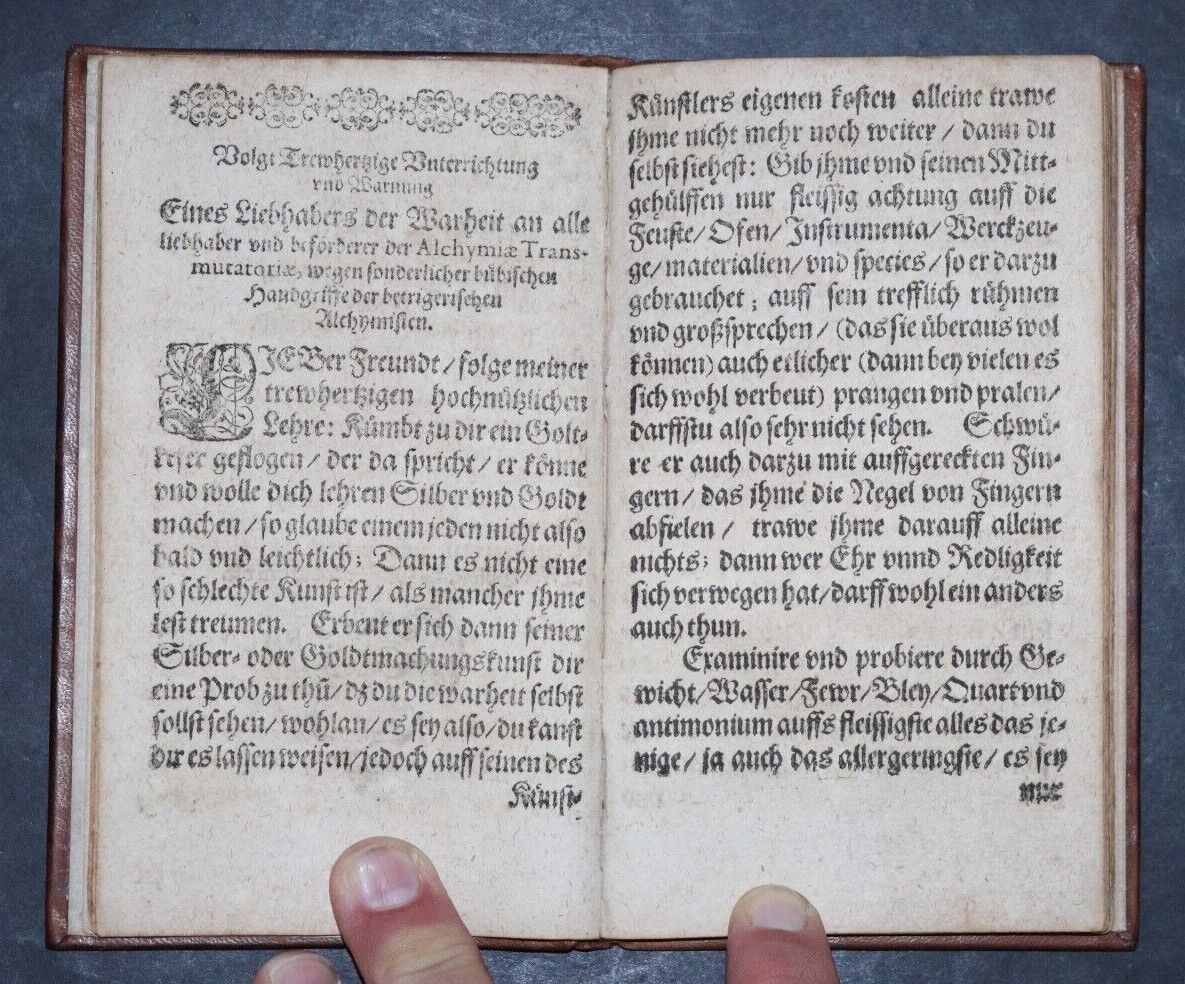 Volgt Trewhertzige Vnterrichtung
vnd Warnung
Eines Liebhabers der Warheit an alle
liebhaber vnd beförderer der Alchymiæ Trans-
mutatoriæ, wegen sonderlicher bübischen
Handgriffe der betrigerischen
Alchymisten.
LIEBer Freundt / folge meiner
trewhertzigen hochnützlichen
Lehre: Kümbt zu dir ein Golt-
kefer geflogen / der da spricht / er könne
vnd wolle dich lehren Silber vnd Goldt
machen / so glaube einem jeden nicht also
bald vnd leichtlich; Dann es nicht eine
so schlechte Kunst ist / als mancher jhme
lest treumen. Erbeut er sich dann seiner
Silber- oder Goldtmachungskunst dir
eine Prob zu thū / dz du die warheit selbst
sollst sehen / wohlan / es sey also / du kanst
dir es lassen weisen / jedoch auff seinen des
Künst-
Künstlers eigenen kosten alleine trawe
jhme nicht mehr noch weiter / dann du
selbst siehest: Gib jhme vnd seinen Mitt-
gehülffen nur fleissig achtung auff die
Feuste / Ofen / Instrumenta / Werckzeu-
ge / materialien / vnd species / so er darzu
gebrauchet; auff sein trefflich rühmen
vnd großsprechen / (das sie überaus wol
können) auch etlicher (dann bey vielen es
sich wohl verbeut) prangen vnd pralen /
darffstu also sehr nicht sehen. Schwü-
re er auch darzu mit auffgereckten Fin-
gern / das jhme die Negel von Fingern
abfielen / trawe jhme darauff alleine
nichts; dann wer Ehr vnnd Redligkeit
sich verwegen hat / darff wohl ein anders
auch thun.
Examinire vnd probiere durch Ge-
wicht / Wasser / Fewr / Bley / Quart vnd
antimonium auffs fleissigste alles das je-
nige / ja auch das allergeringste / es sey
nur